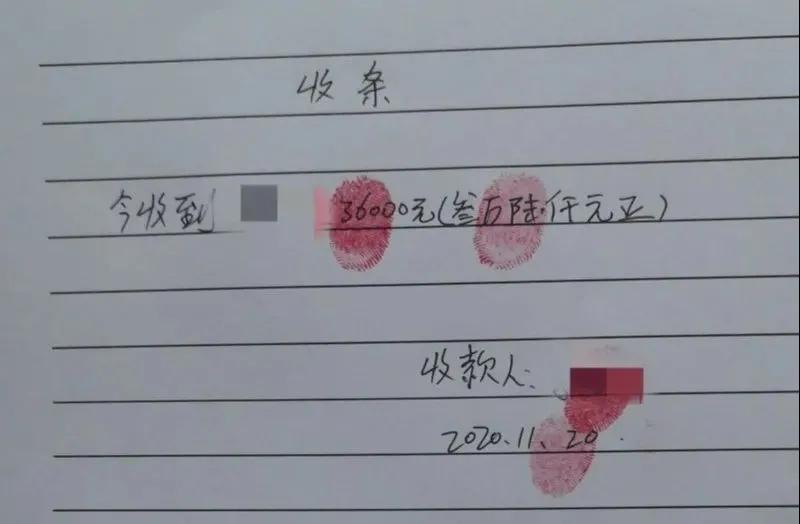 收条
今收到 36000元(叁万陆仟元正)
收款人:
2020.11.20.